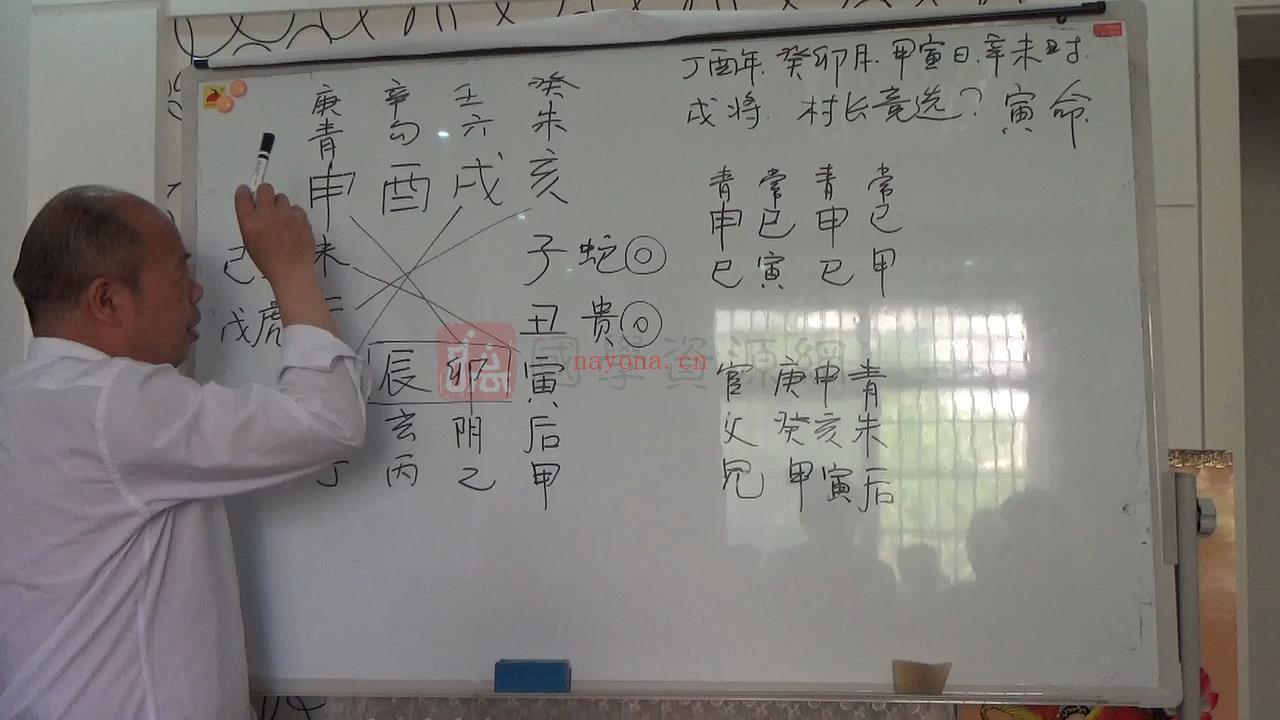 丁酉年.癸卯月.甲寅日.辛未时.
戌将.村长竞选?寅命.
庚 辛 壬 癸
青 勾 六 朱
申 酉 戌 亥
己 未 子 蛇 ◎
戊 虎 丑 贵 ◎
辰 卯 寅
玄 阴 后
丁 丙 乙 甲
青 常 青 常
申 巳 申 巳
巳 寅 巳 甲
官 庚申青
父 癸亥朱
兄 甲寅后
國學資源網
nayona.cn